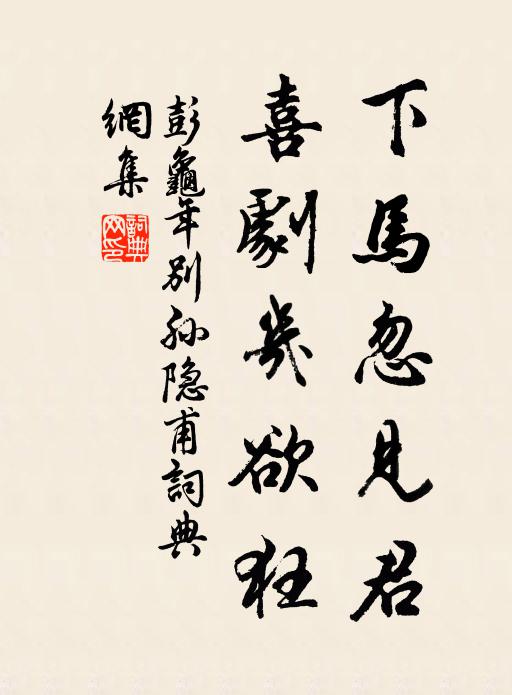 下馬忽見君
喜劇幾欲狂
彭龜年別孙隐甫詞典
網集
詞典
网印